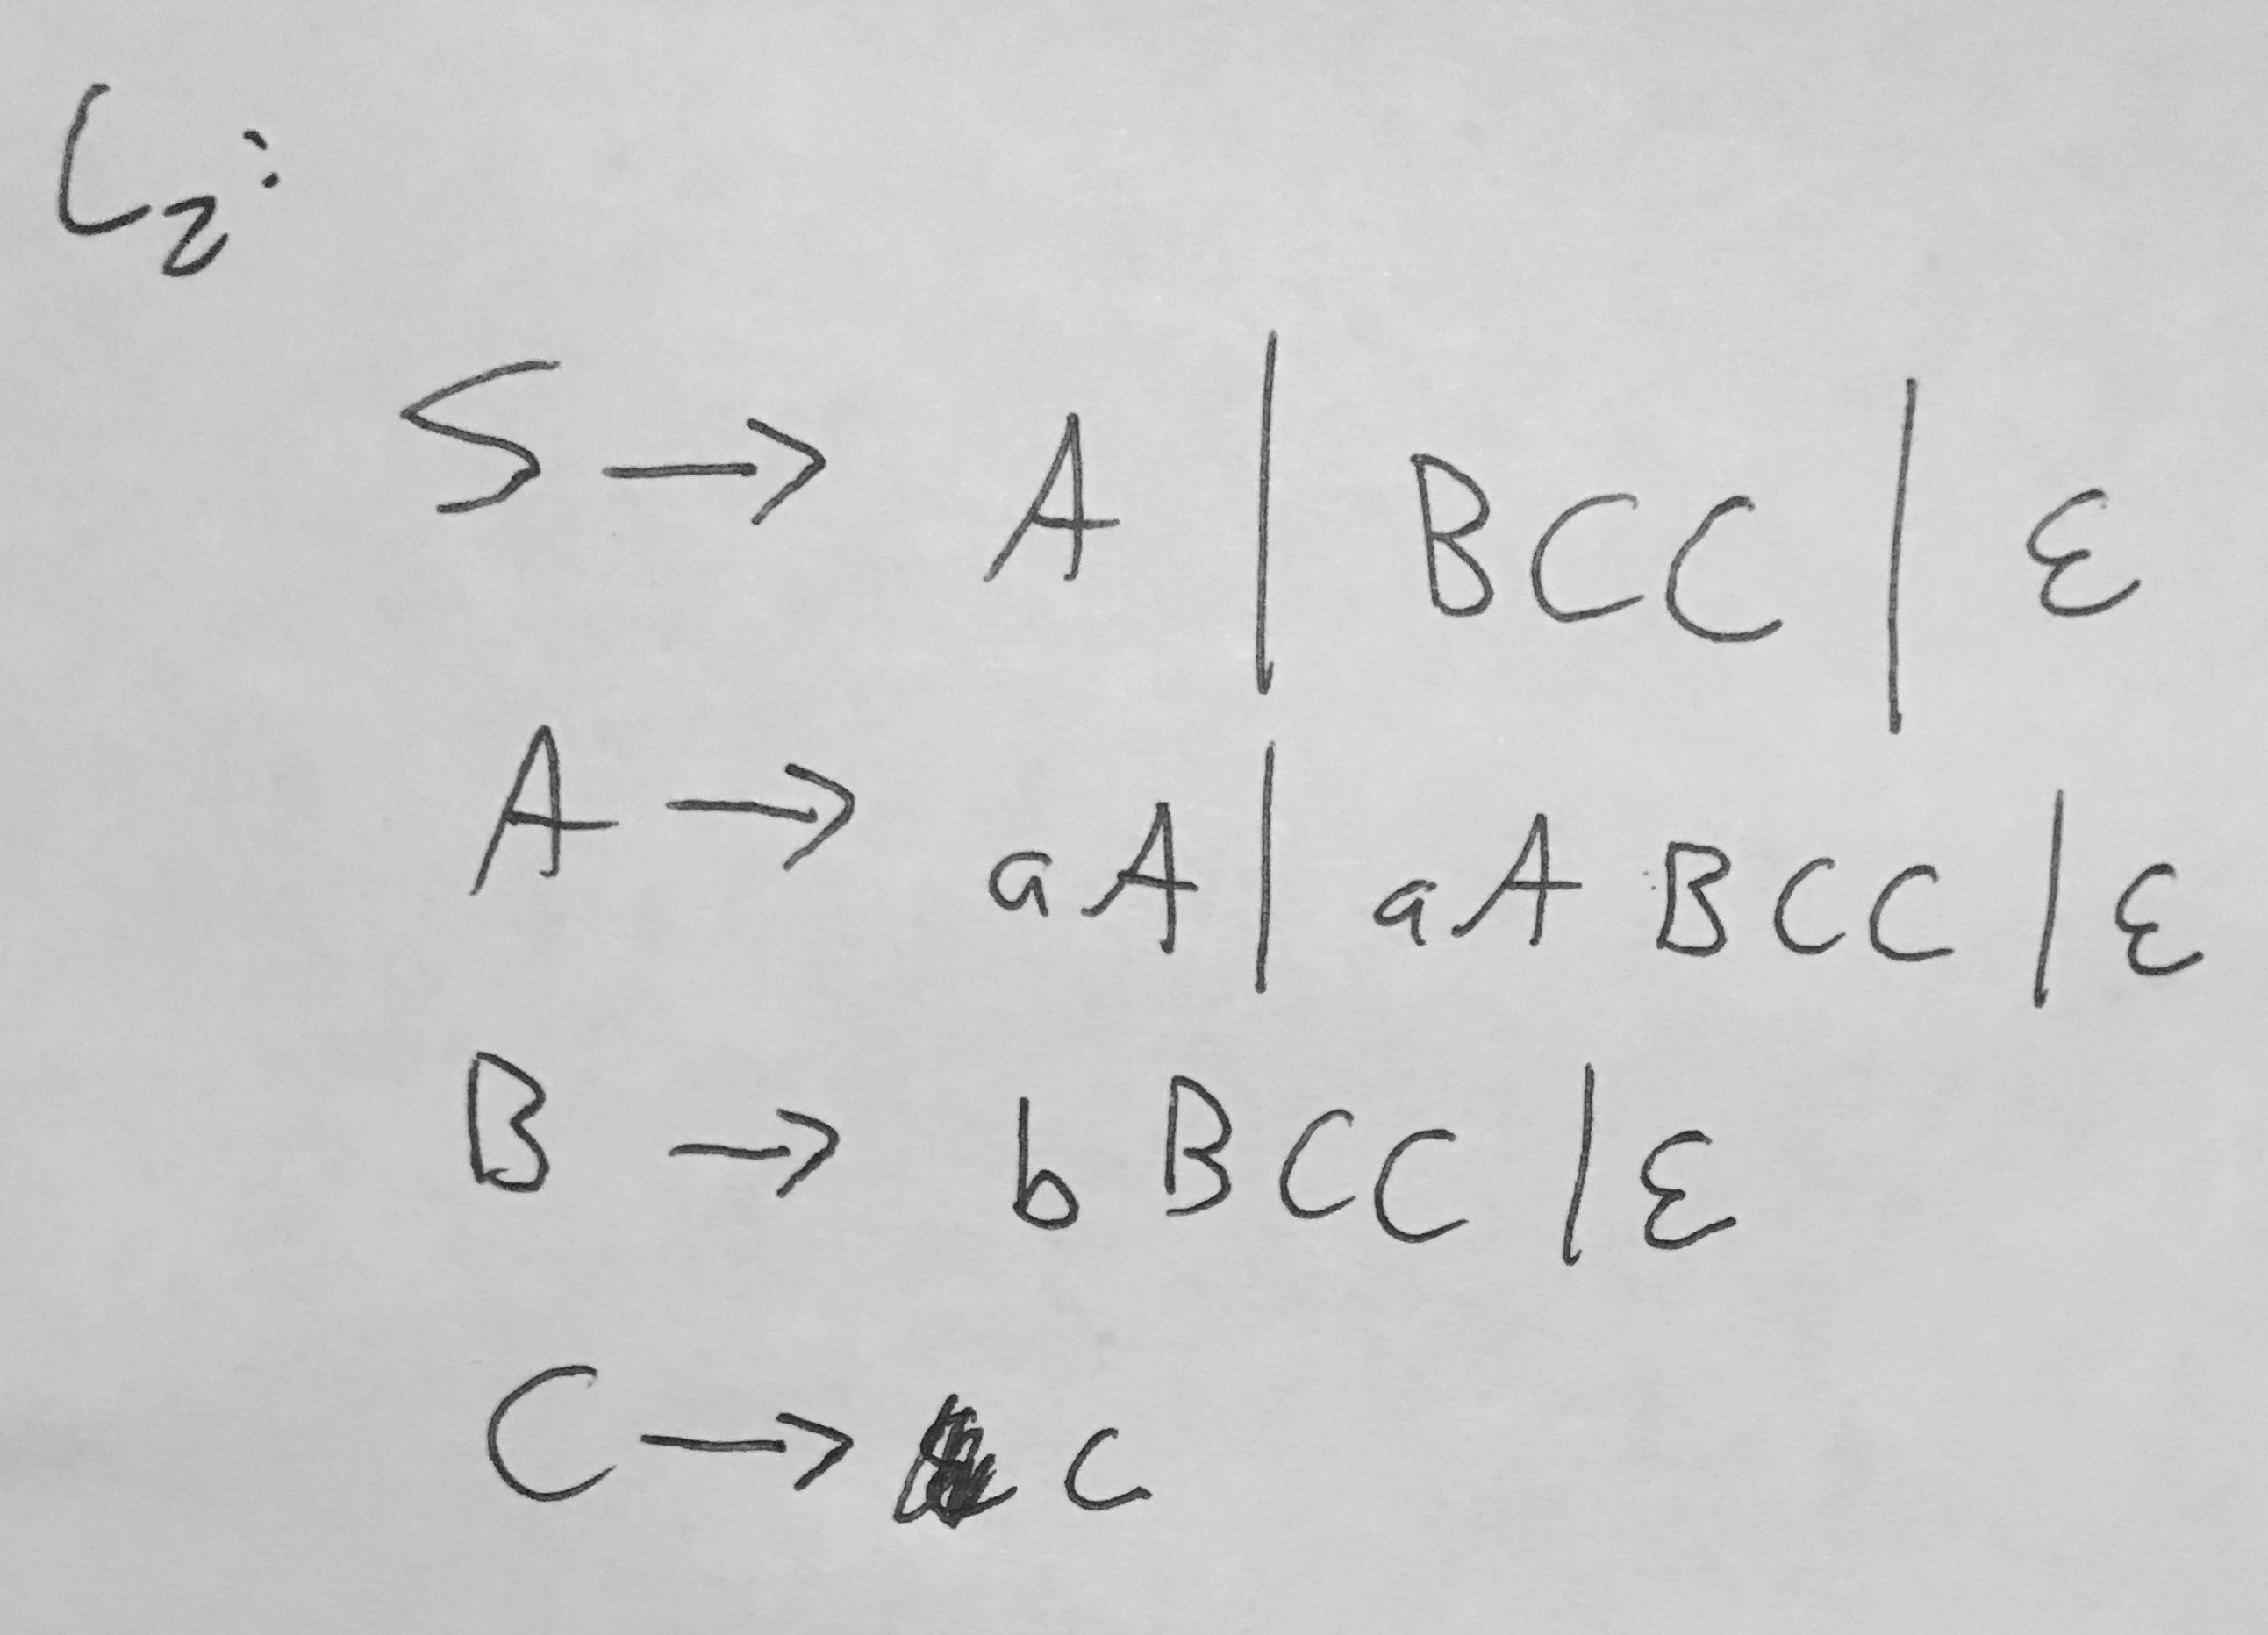 L₂:
S → A | BCC | ε
A → aA | aABCC | ε
B → bBCC | ε
C → c